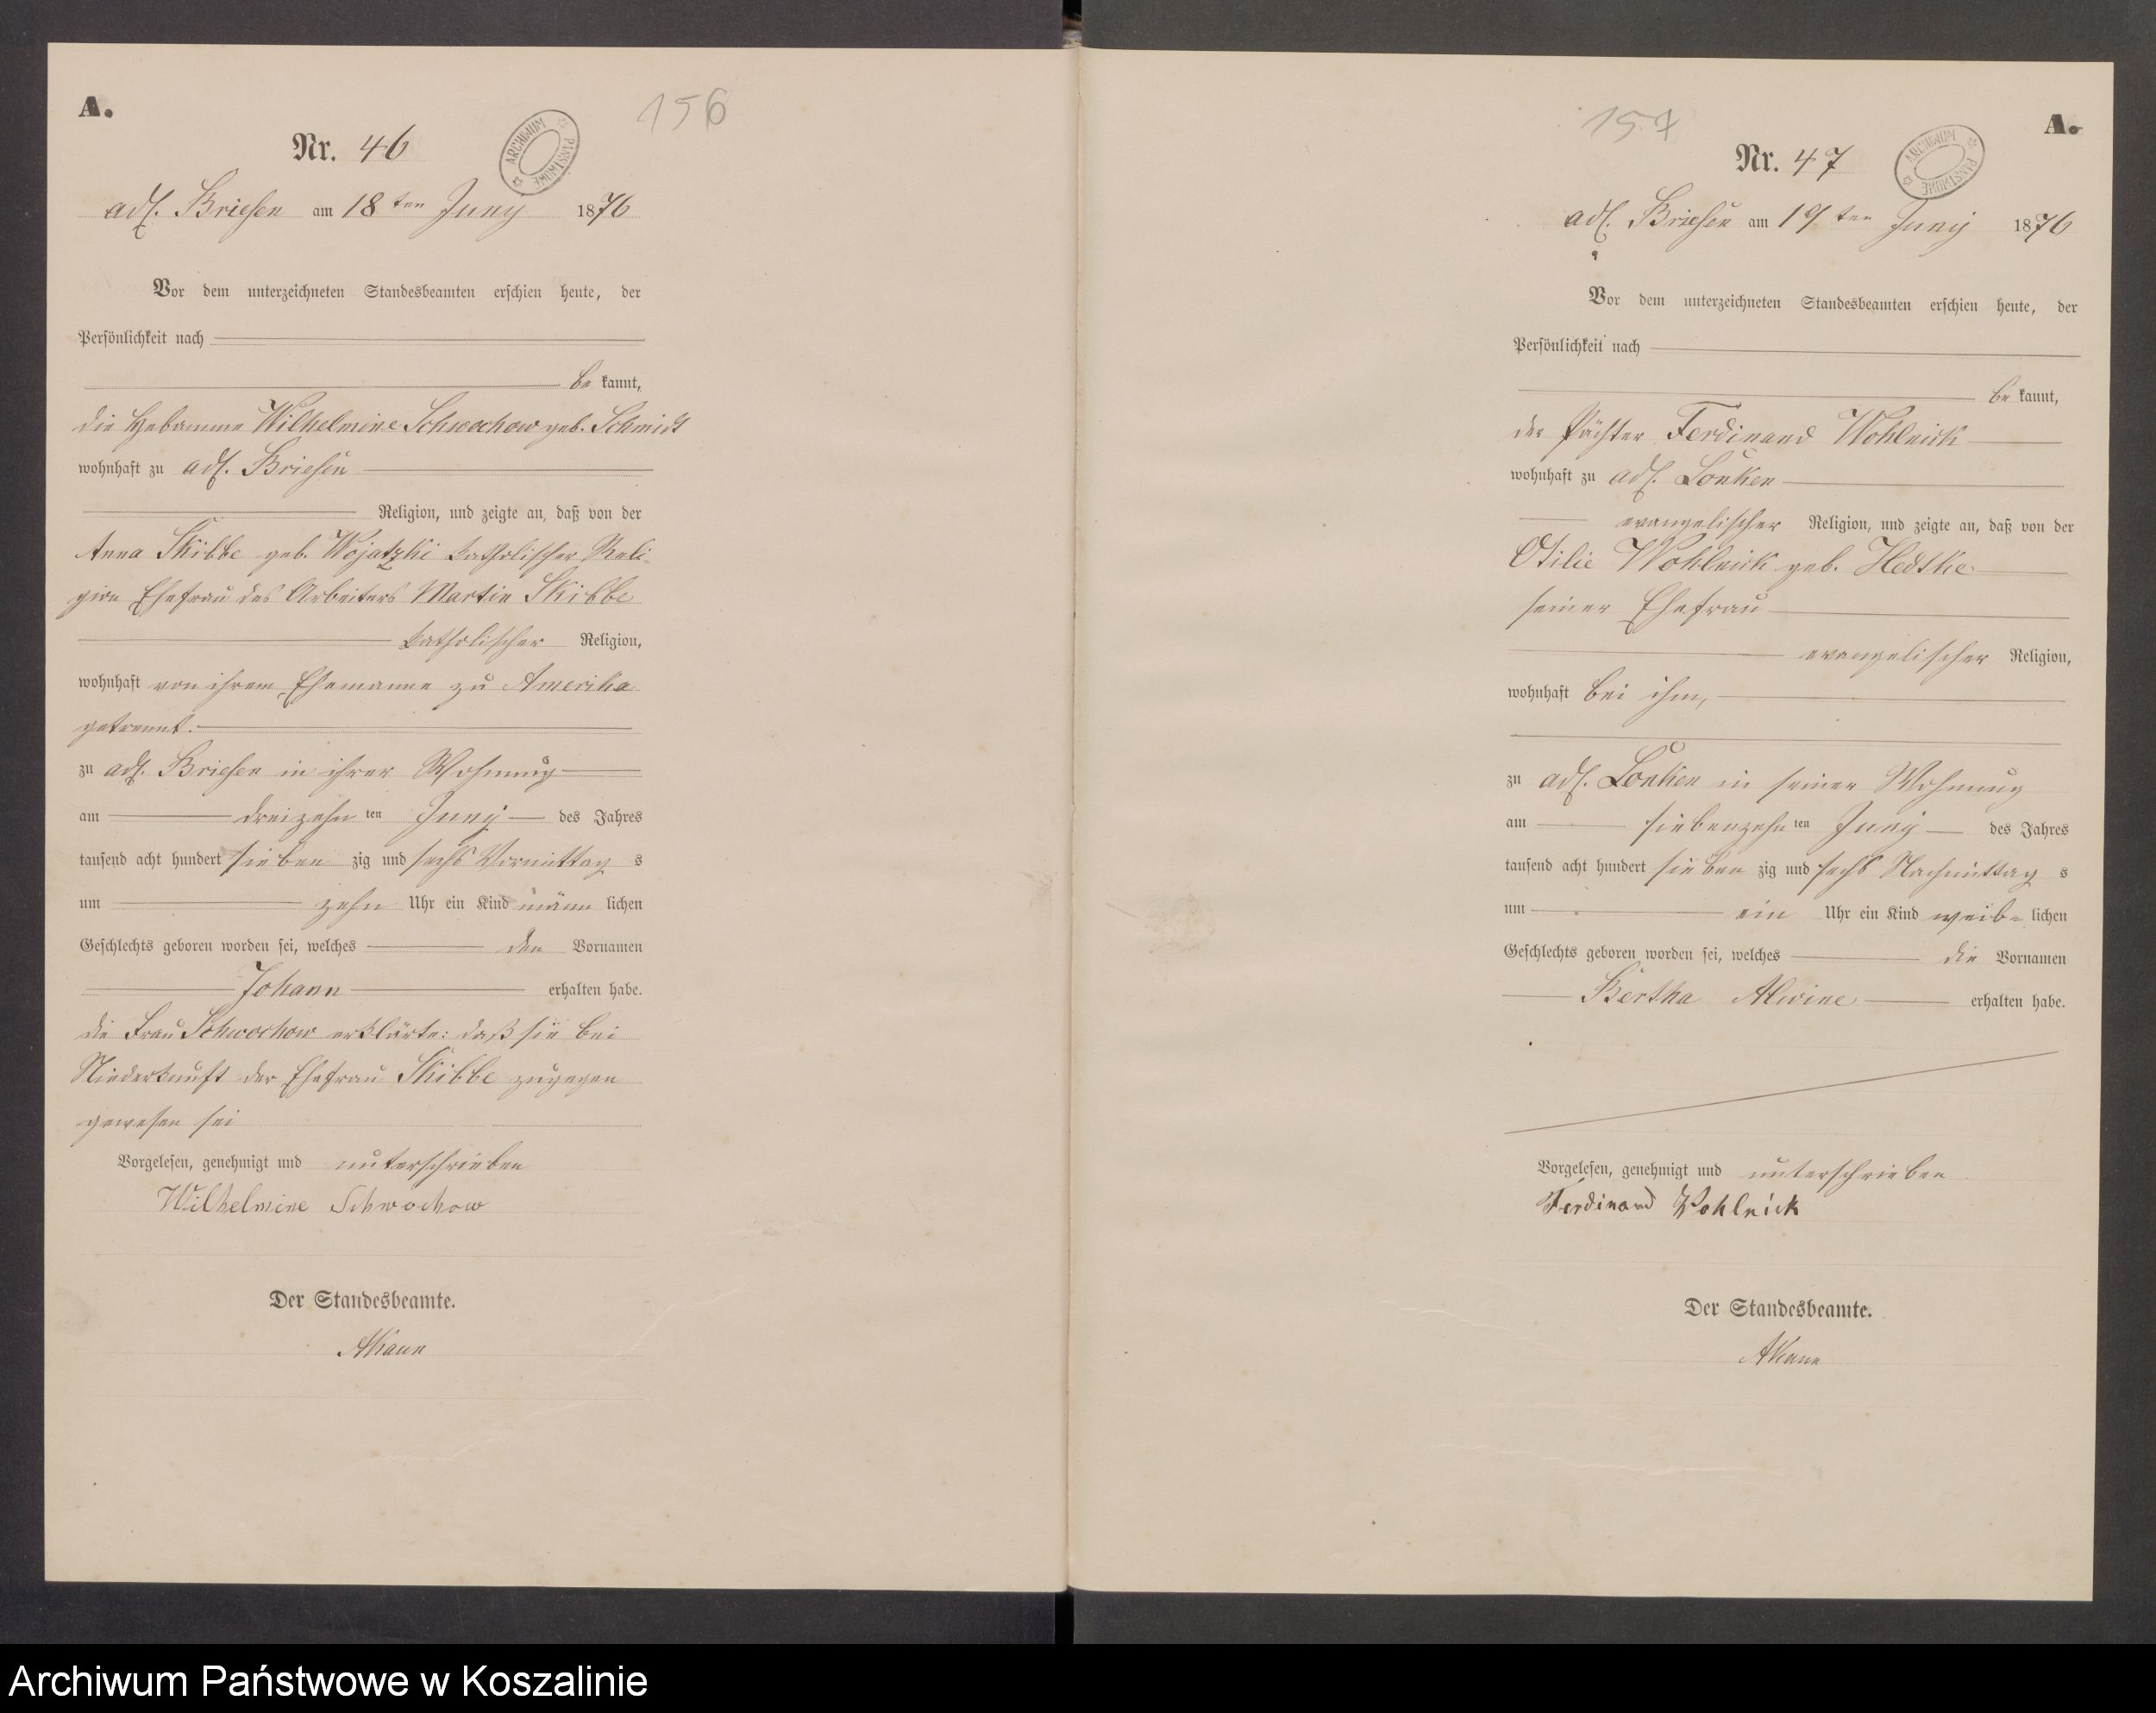 A.
156
Nr. 46
ARCHIWUM PAŃSTWOWE
adl. Briesen am 18ten Juny 1876
Vor dem unterzeichneten Standesbeamten erschien heute, der
Persönlichkeit nach
be kannt,
die Hebamme Wilhelmine Schwochow geb. Schmidt
wohnhaft zu adl. Briesen
Religion, und zeigte an, daß von der
Anna Skibbe geb. Wojatzki katholischer Reli-
gion Ehefrau des Arbeiters Martin Skibbe
katholischer Religion,
wohnhaft von ihrem Ehemanne zu Amerika
getrennt.
zu adl. Briesen in ihrer Wohnung
am dreizehn ten Juny des Jahres
tausend acht hundert sieben zig und sechs Vormittag s
um zehn Uhr ein Kind männ lichen
Geschlechts geboren worden sei, welches den Vornamen
Johann erhalten habe.
die Frau Schwochow erklärte: daß sie bei
Niederkunft der Ehefrau Skibbe zugegen
gewesen sei
Vorgelesen, genehmigt und unterschrieben
Wilhelmine Schwochow
Der Standesbeamte.
A.
157
Nr. 47
ARCHIWUM PAŃSTWOWE
adl. Briesen am 19ten Juny 1876
Vor dem unterzeichneten Standesbeamten erschien heute, der
Persönlichkeit nach
be kannt,
der Pächter Ferdinand Wohlnick
wohnhaft zu adl. Lonken
evangelischer Religion, und zeigte an, daß von der
Otilie Wohlnick geb. Hedtke
seiner Ehefrau
evangelischer Religion,
wohnhaft bei ihm,
zu adl. Lonken in seiner Wohnung
am siebenzehn ten Juny des Jahres
tausend acht hundert sieben zig und sechs Nachmittag s
um ein Uhr ein Kind weib- lichen
Geschlechts geboren worden sei, welches die Vornamen
Bertha Alwine erhalten habe.
Vorgelesen, genehmigt und unterschrieben
Ferdinand Wohlnick
Der Standesbeamte.
Archiwum Państwowe w Koszalinie